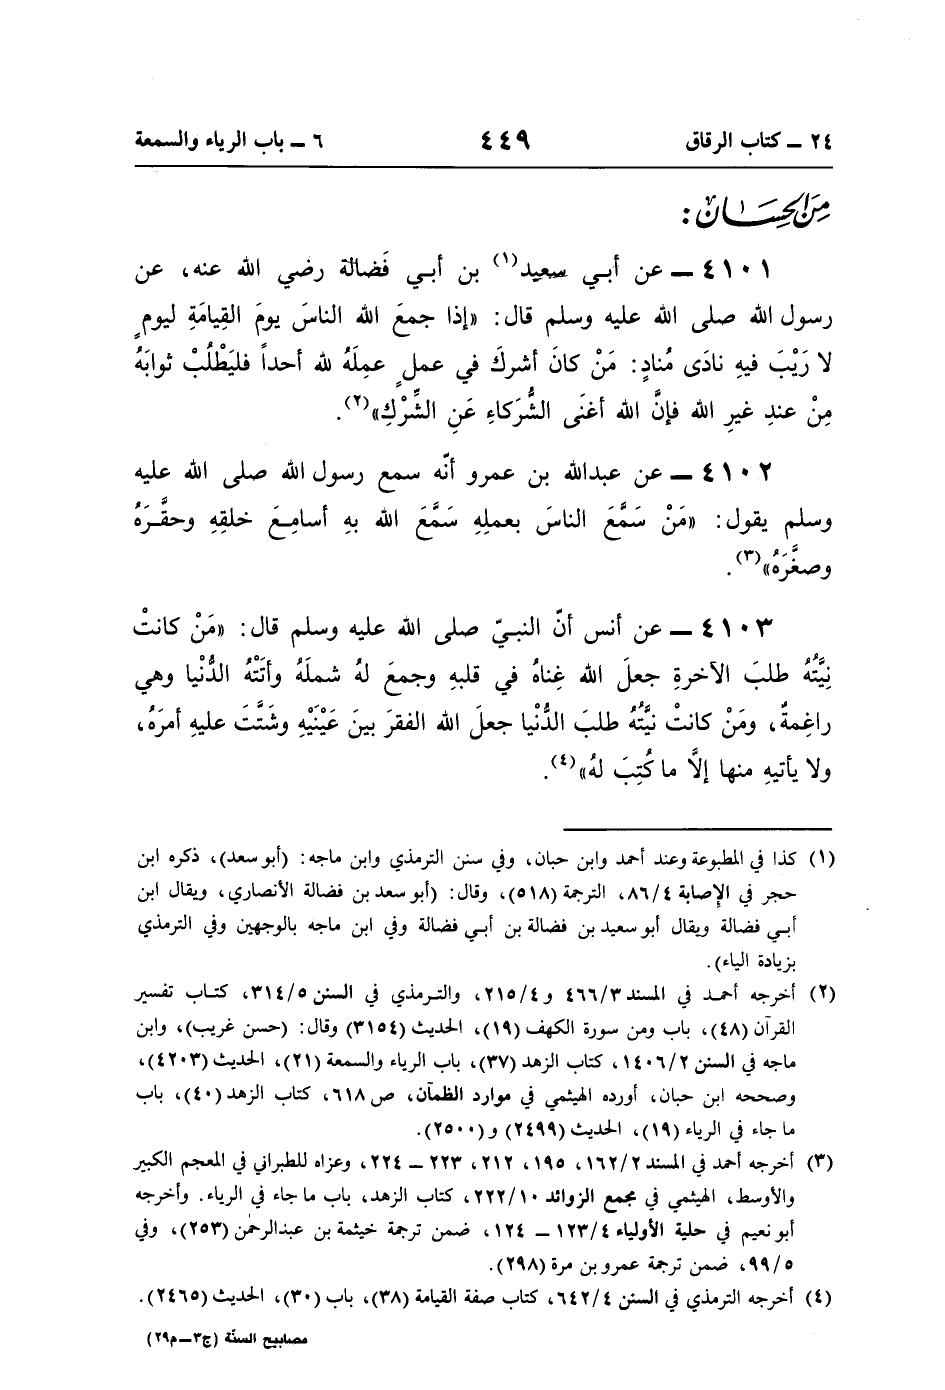 ٢٤ ـ كتاب الرقاق ٤٤٩ ٦ ـ باب الرياء والسمعة
مِنَ الْحِسَان :
٤١٠١ ـ عن أبي سعيد(١) بن أبي فَضالة رضي الله عنه، عن
رسول الله صلى الله عليه وسلم قال: «إذا جمعَ الله الناسَ يومَ القِيامَةِ ليومٍ
لا رَيْبَ فيهِ نادَى مُنادٍ: مَنْ كانَ أشركَ في عملٍ عمِلَهُ لله أحداً فليَطْلُبْ ثوابَهُ
مِنْ عندِ غيرِ الله فإنَّ الله أغنَى الشُّرَكاءِ عَنِ الشِّرْكِ»(٢).
٤١٠٢ ـ عن عبدالله بن عمرو أنّه سمع رسول الله صلى الله عليه
وسلم يقول: «مَنْ سَمَّعَ الناسَ بعملِهِ سَمَّعَ الله بهِ أسامِعَ خلقِهِ وحقَّرَهُ
وصغَّرَهُ»(٣).
٤١٠٣ ـ عن أنس أنّ النبيّ صلى الله عليه وسلم قال: «مَنْ كانتْ
نِيَّتُهُ طلبَ الآخرةِ جعلَ الله غِناهُ في قلبهِ وجمعَ لهُ شملَهُ وأتَتْهُ الدُّنْيا وهي
راغِمةٌ، ومَنْ كانتْ نيَّتُهُ طلبَ الدُّنْيا جعلَ الله الفقرَ بينَ عَيْنَيْهِ وشَتَّتَ عليهِ أمرَهُ،
ولا يأتيهِ منها إلاَّ ما كُتِبَ لهُ»(٤).
(١) كذا في المطبوعة وعند أحمد وابن حبان، وفي سنن الترمذي وابن ماجه: (أبو سعد)، ذكره ابن
حجر في الإصابة ٨٦/٤، الترجمة (٥١٨)، وقال: (أبو سعد بن فضالة الأنصاري، ويقال ابن
أبي فضالة ويقال أبو سعيد بن فضالة بن أبي فضالة وفي ابن ماجه بالوجهين وفي الترمذي
بزيادة الياء).
(٢) أخرجه أحمد في المسند ٤٦٦/٣ و ٢١٥/٤، والترمذي في السنن ٣١٤/٥، كتاب تفسير
القرآن (٤٨)، باب ومن سورة الكهف (١٩)، الحديث (٣١٥٤) وقال: (حسن غريب)، وابن
ماجه في السنن ١٤٠٦/٢، كتاب الزهد (٣٧)، باب الرياء والسمعة (٢١)، الحديث (٤٢٠٣)،
وصححه ابن حبان، أورده الهيثمي في موارد الظمآن، ص ٦١٨، كتاب الزهد (٤٠)، باب
ما جاء في الرياء (١٩)، الحديث (٢٤٩٩) و(٢٥٠٠).
(٣) أخرجه أحمد في المسند ١٦٢/٢، ١٩٥، ٢١٢، ٢٢٣ ـ ٢٢٤، وعزاه للطبراني في المعجم الكبير
والأوسط، الهيثمي في مجمع الزوائد ٢٢٢/١٠، كتاب الزهد، باب ما جاء في الرياء. وأخرجه
أبو نعيم في حلية الأولياء ١٢٣/٤ ـ ١٢٤، ضمن ترجمة خيثمة بن عبدالرحمٰن (٢٥٣)، وفي
٩٩/٥، ضمن ترجمة عمرو بن مرة (٢٩٨).
(٤) أخرجه الترمذي في السنن ٦٤٢/٤، كتاب صفة القيامة (٣٨)، باب (٣٠)، الحديث (٢٤٦٥).
مصابيح السنّة (ج٣ـم٢٩)